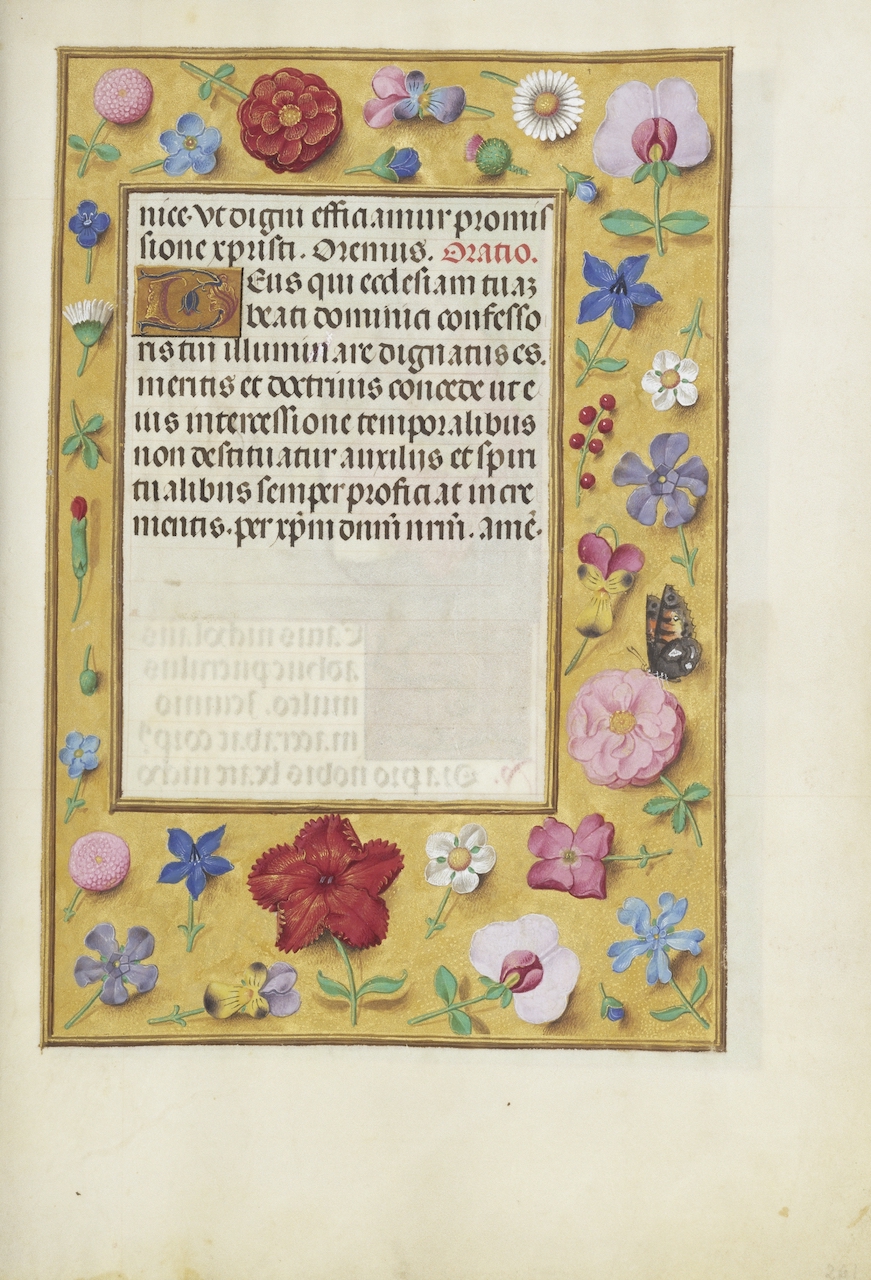 nice. Vt digni efficiamur promis
sione xpristi. Oremus. Oratio.
Deus qui ecclesiam tuaz
beati dominici confesso
ris tui illuminare dignatus es.
meritis et doctrinis concede ut e
ius intercessione temporalibus
non destituatur auxilijs et spiri
tualibus semper proficiat incre
mentis. per xp̄m dn̄m nr̄m. amē.